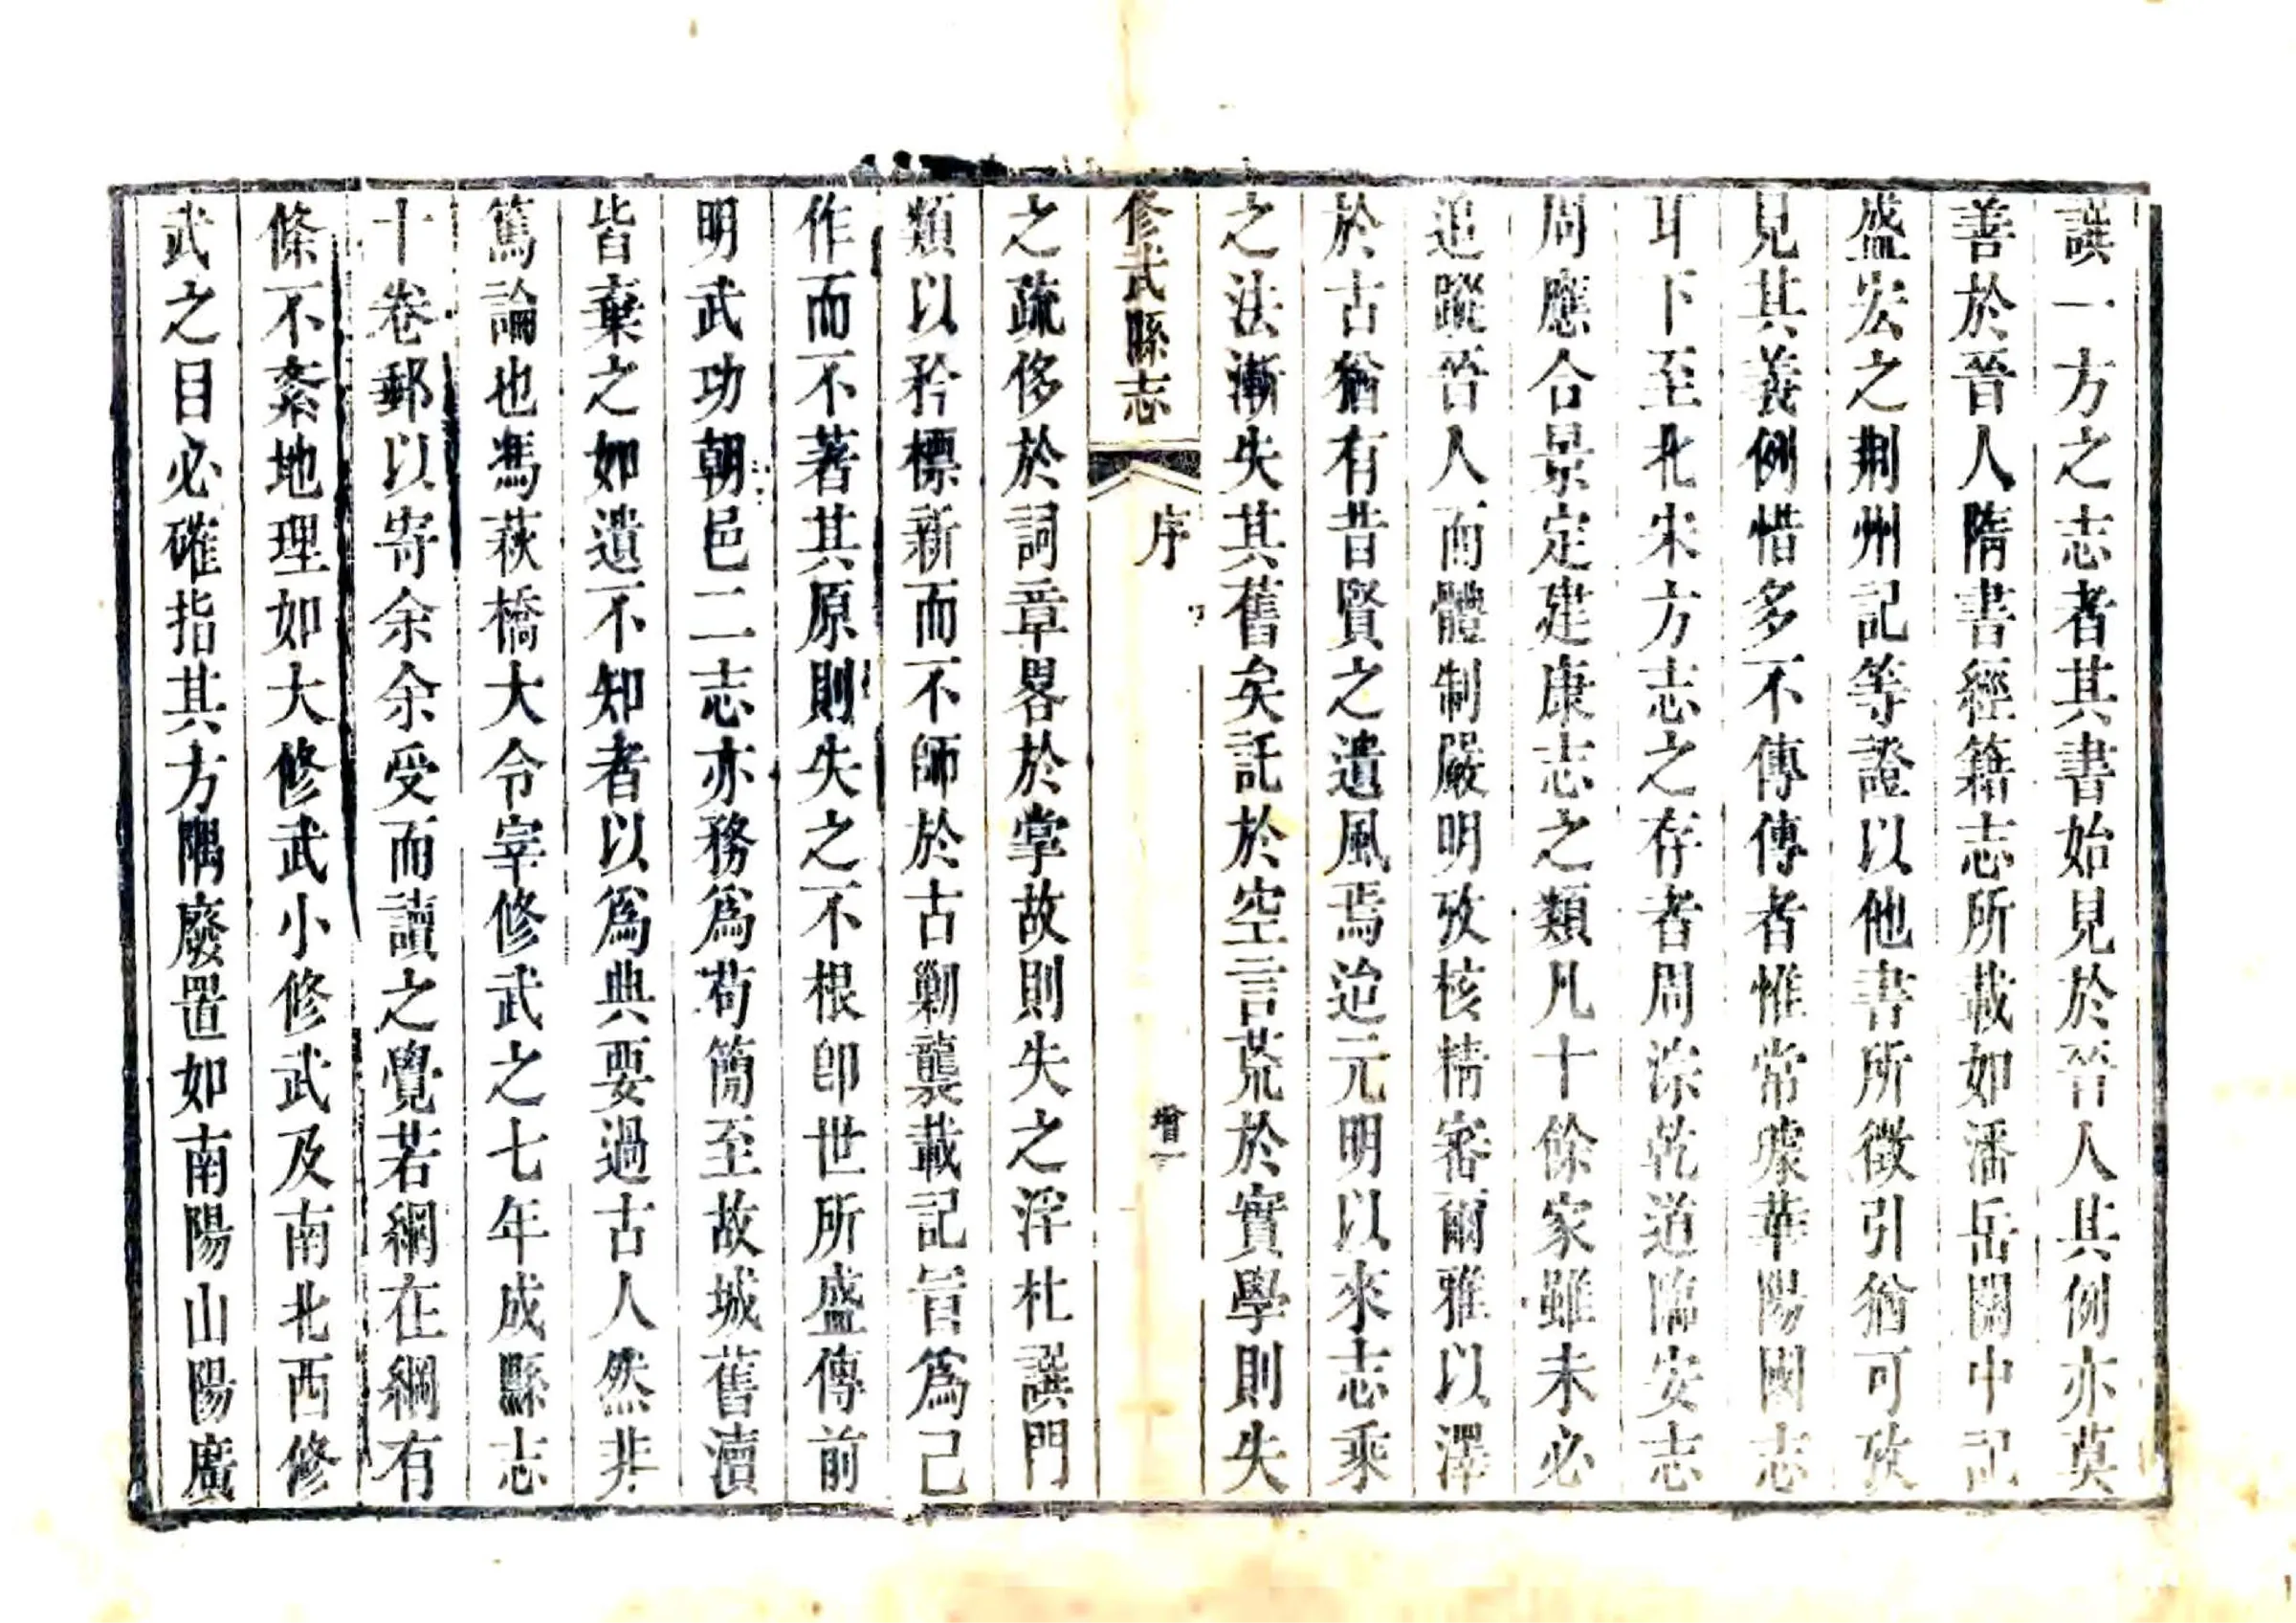 譔一方之志者其書始見於晉人其例亦莫
善於晉人隋書經籍志所載如潘岳關中記
盛宏之荆州記等證以他書所徵引猶可攷
見其義例惜多不傳傳者惟常璩華陽國志
耳下至北宋方志之存者周淙乾道臨安志
周應合景定建康志之類凡十餘家雖未必
追蹤晉人而體制嚴明攷核精審爾雅以澤
於古猶有昔賢之遺風焉迨元明以來志乘
之法漸失其舊矣託於空言荒於實學則失
修武縣志 序 增一
之疏侈於詞章畧於掌故則失之浮杜譔門
類以矜標新而不師於古剿襲載記旨爲己
作而不著其原則失之不根卽世所盛傳前
明武功朝邑二志亦務爲苟簡至故城舊瀆
皆棄之如遺不知者以爲典要過古人然非
篤論也馮萩橋大令宰修武之七年成縣志
十卷郵以寄余余受而讀之覺若網在綱有
條不紊地理如大修武小修武及南北西修
武之目必確指其方隅廢置如南陽山陽廣